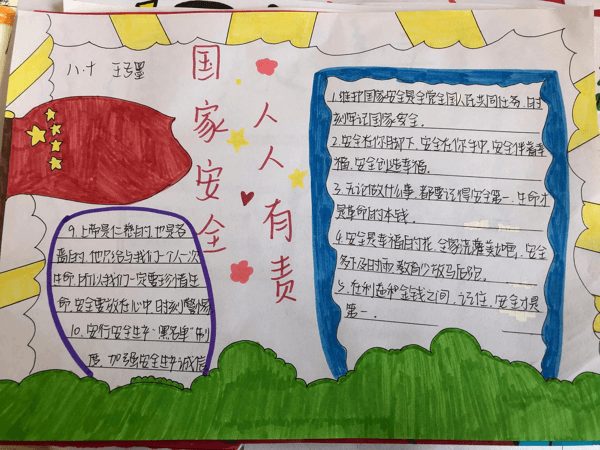 八.十 王
国家安全
人人有责
1.维护国家安全是全党全国人民共同任务,时
刻牢记国家安全.
2.安全在你脚下,安全在你手中,安全伴着幸
福,安全创造幸福.
3.无论做什么事,都要记得安全第一,生命才
是革命的本钱.
4.安全是幸福的花,全家浇灌美如画,安全
多下及时雨,教育少放马后炮.
5.在利益和金钱之间,记住,安全才是
第一.
9.上帝是仁慈的,也是吝
啬的,他只给与我们一个人一次
生命,所以我们一定要珍惜生
命.安全要放在心中,时刻警惕
10.实行安全生产"黑名单"制
度,加强安全生产诚信